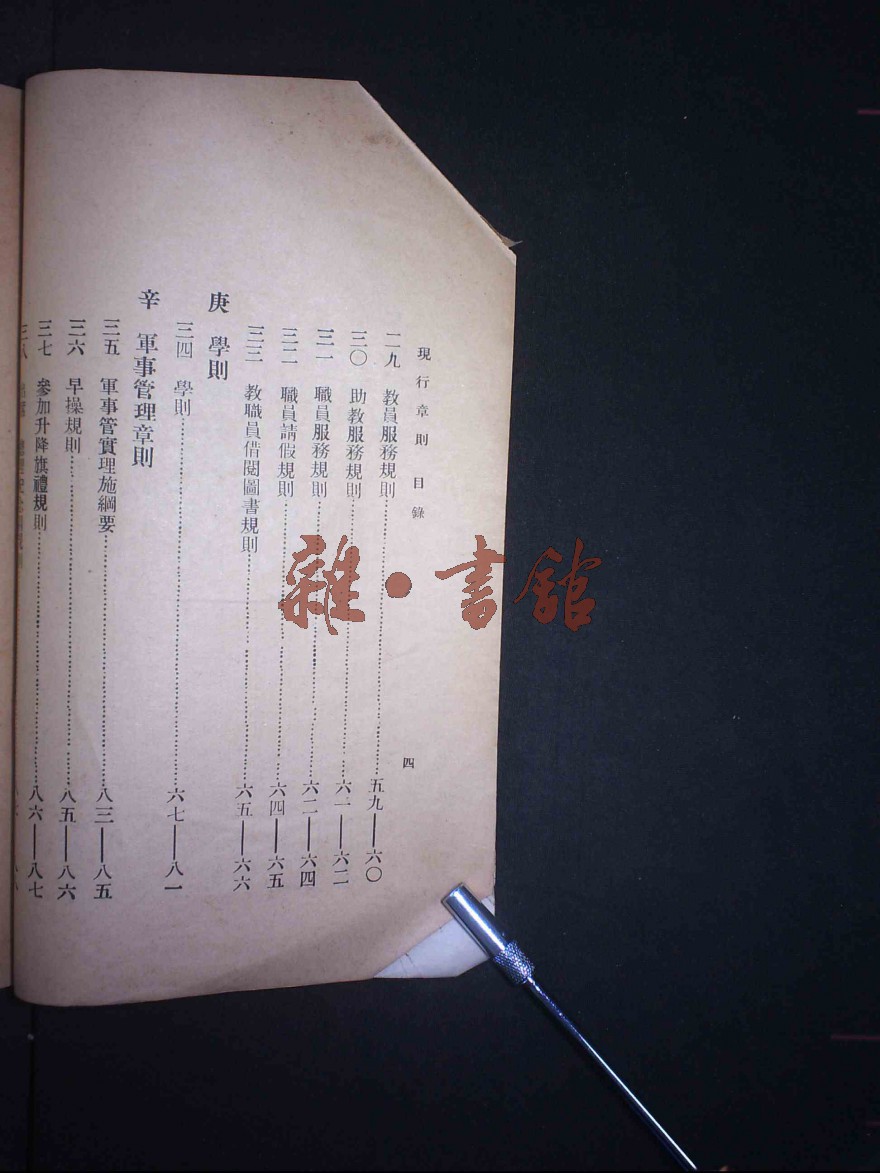 現行章則 目錄
四
二九 教員服務規則……五九——六〇
三〇 助教服務規則……六一——六二
三一 職員服務規則……六二——六四
三二 職員請假規則……六四——六五
三三 教職員借閱圖書規則……六五——六六
庚 學則
三四 學則……六七——八一
辛 軍事管理章則
三五 軍事管實理施綱要……八三——八五
三六 早操規則……八五——八六
三七 參加升降旗禮規則……八六——八七
三八
雜·書館